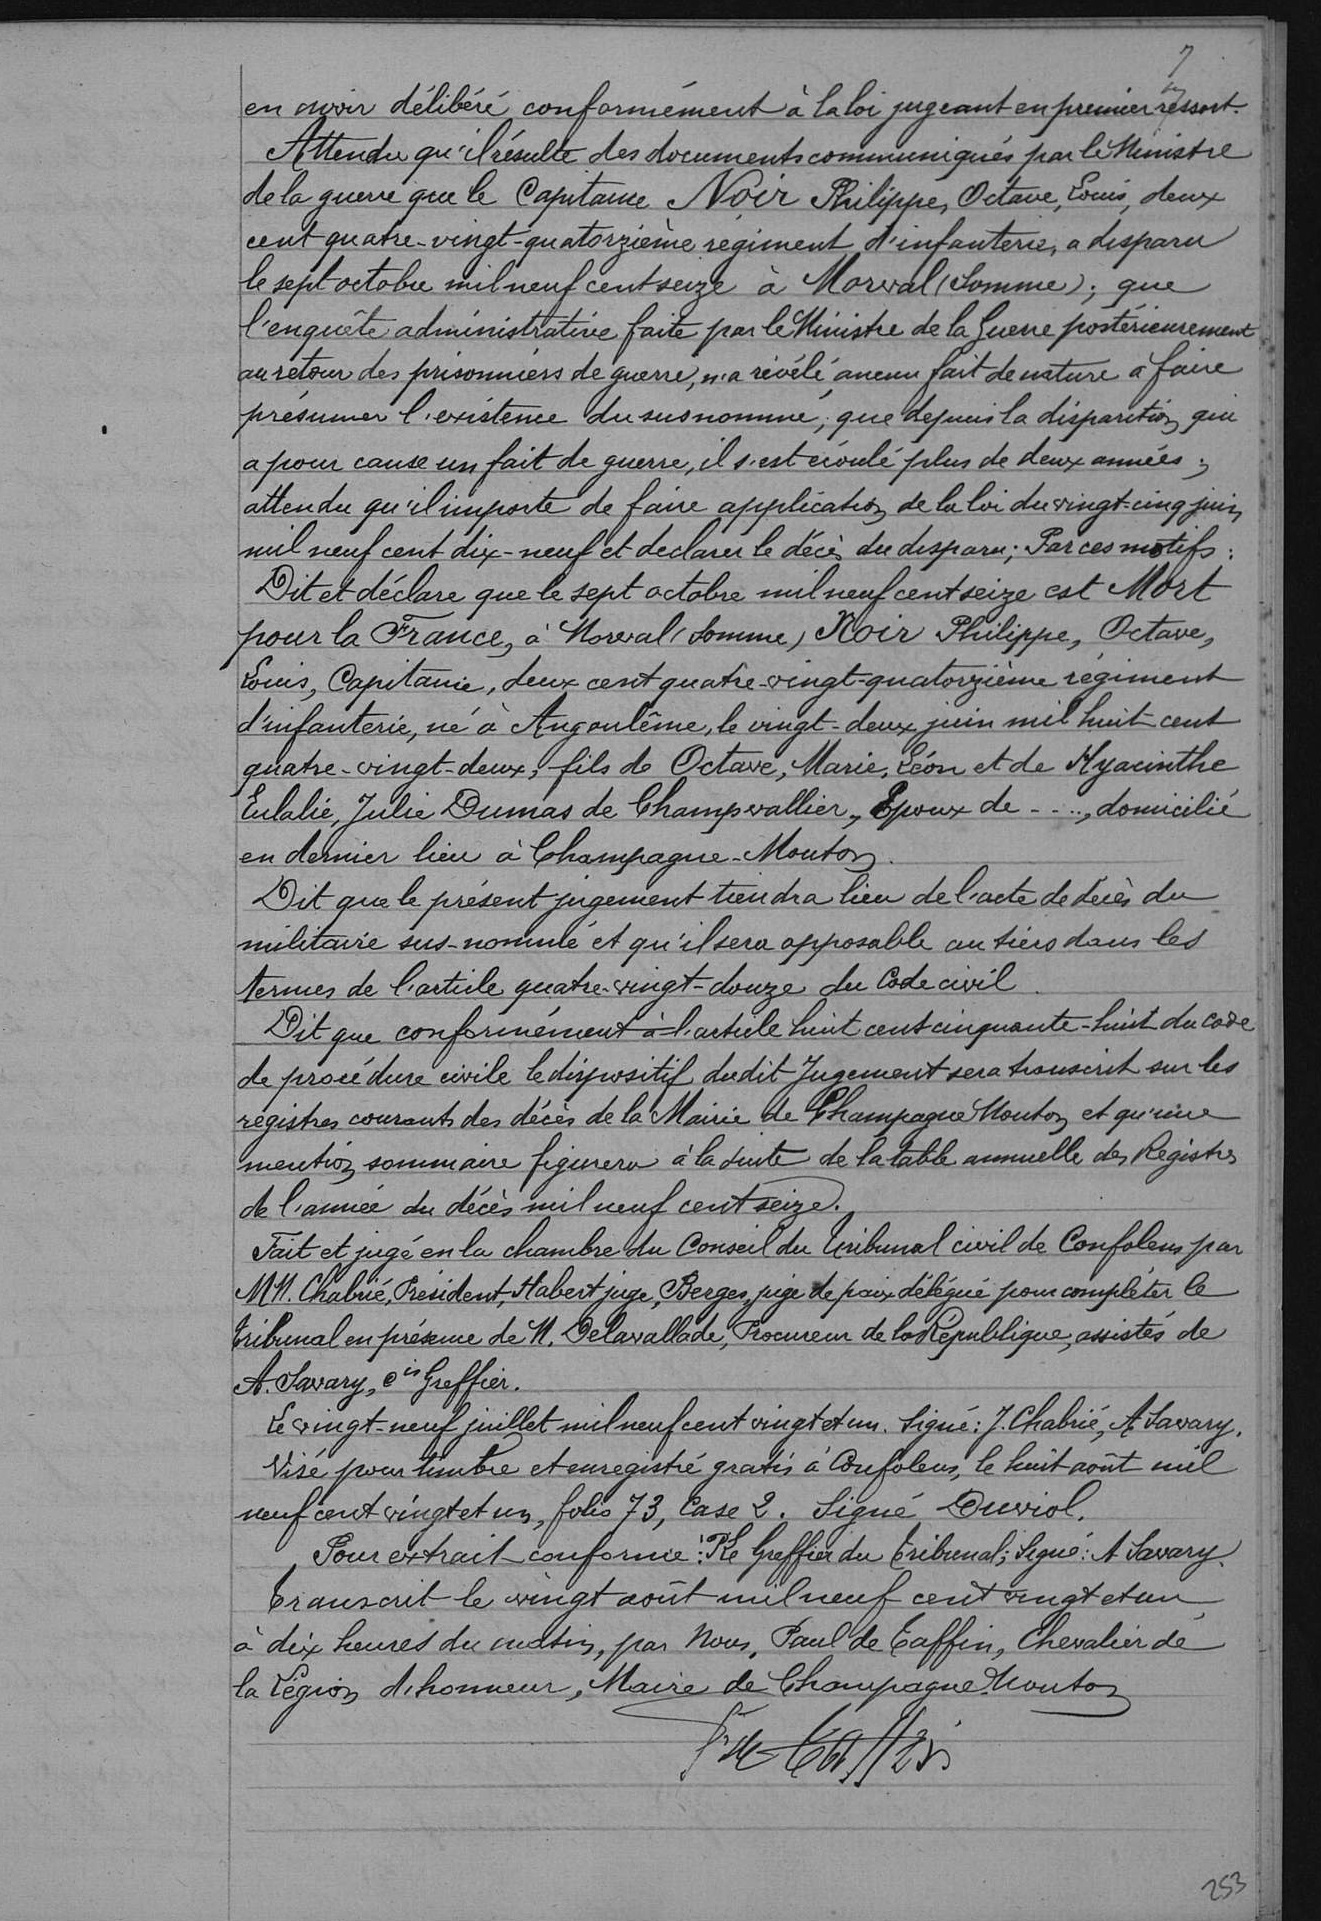 7
en avoir délibéré conformément à la loi jugeant en premier ressort.
Attendu qu'il résulte des documents communiqués par le Ministre
de la guerre que le Capitaine Noir Philippe, Octave, Louis, deux
cent quatre-vingt-quatorzième régiment d'infanterie, a disparu
le sept octobre mil neuf cent seize à Morval (Somme); que
l'enquête administrative faite par le Ministre de la Guerre postérieurement
au retour des prisonniers de guerre, n'a révélé aucun fait de nature à faire
présumer l'existence du susnommé; que depuis la disparition qui
a pour cause un fait de guerre, il s'est écoulé plus de deux années;
attendu qu'il importe de faire application de la loi du vingt-cinq juin
mil neuf cent dix-neuf et declarer le décès du disparu; Par ces motifs:
Dit et déclare que le sept octobre mil neuf cent seize est Mort
pour la France, à Morval (Somme) Noir Philippe, Octave,
Louis, Capitaine, deux cent quatre-vingt-quatorzième régiment
d'infanterie, né à Angoulême, le vingt-deux juin mil huit cent
quatre-vingt-deux, fils de Octave, Marie, Léon et de Hyacinthe
Eulalie, Julie Dumas de Champvallier, Epoux de - - .., domicilié
en dernier lieu à Champagne-Mouton.
Dit que le présent jugement tiendra lieu de l'acte de décès du
militaire sus-nommé et qu'il sera opposable au tiers dans les
termes de l'article quatre-vingt-douze du Code civil.
Dit que conformément à l'article huit cent cinquante-huit du code
de procédure civile le dispositif dudit Jugement sera transcrit sur les
registres courants des décès de la Mairie de Champagne Mouton et qu'une
mention sommaire figurera à la suite de la table annuelle des Registres
de l'année du décès mil neuf cent seize.
Fait et jugé en la chambre du Conseil du Tribunal civil de Confolens par
MM. Chabrié, Président, Habert juge, Berges, juge de paix délégué pour compléter le
Tribunal en présence de M. Delavallade, Procureur de la République, assistés de
A. Savary, cis Greffier.
Le vingt-neuf juillet mil neuf cent vingt et un. Signé: J. Chabrié, A Savary.
Visé pour timbre et enregistré gratis à Confolens, le huit août mil
neuf cent vingt et un, folio 73, Case 2. Signé Duviol.
Pour extrait conforme: Le Greffier du Tribunal; Signé: A Savary.
Transcrit le vingt août mil neuf cent vingt et un
à dix heures du matin, par Nous, Paul de Taffin, Chevalier de
la Légion d'honneur, Maire de Champagne Mouton
P. de Taffin
253